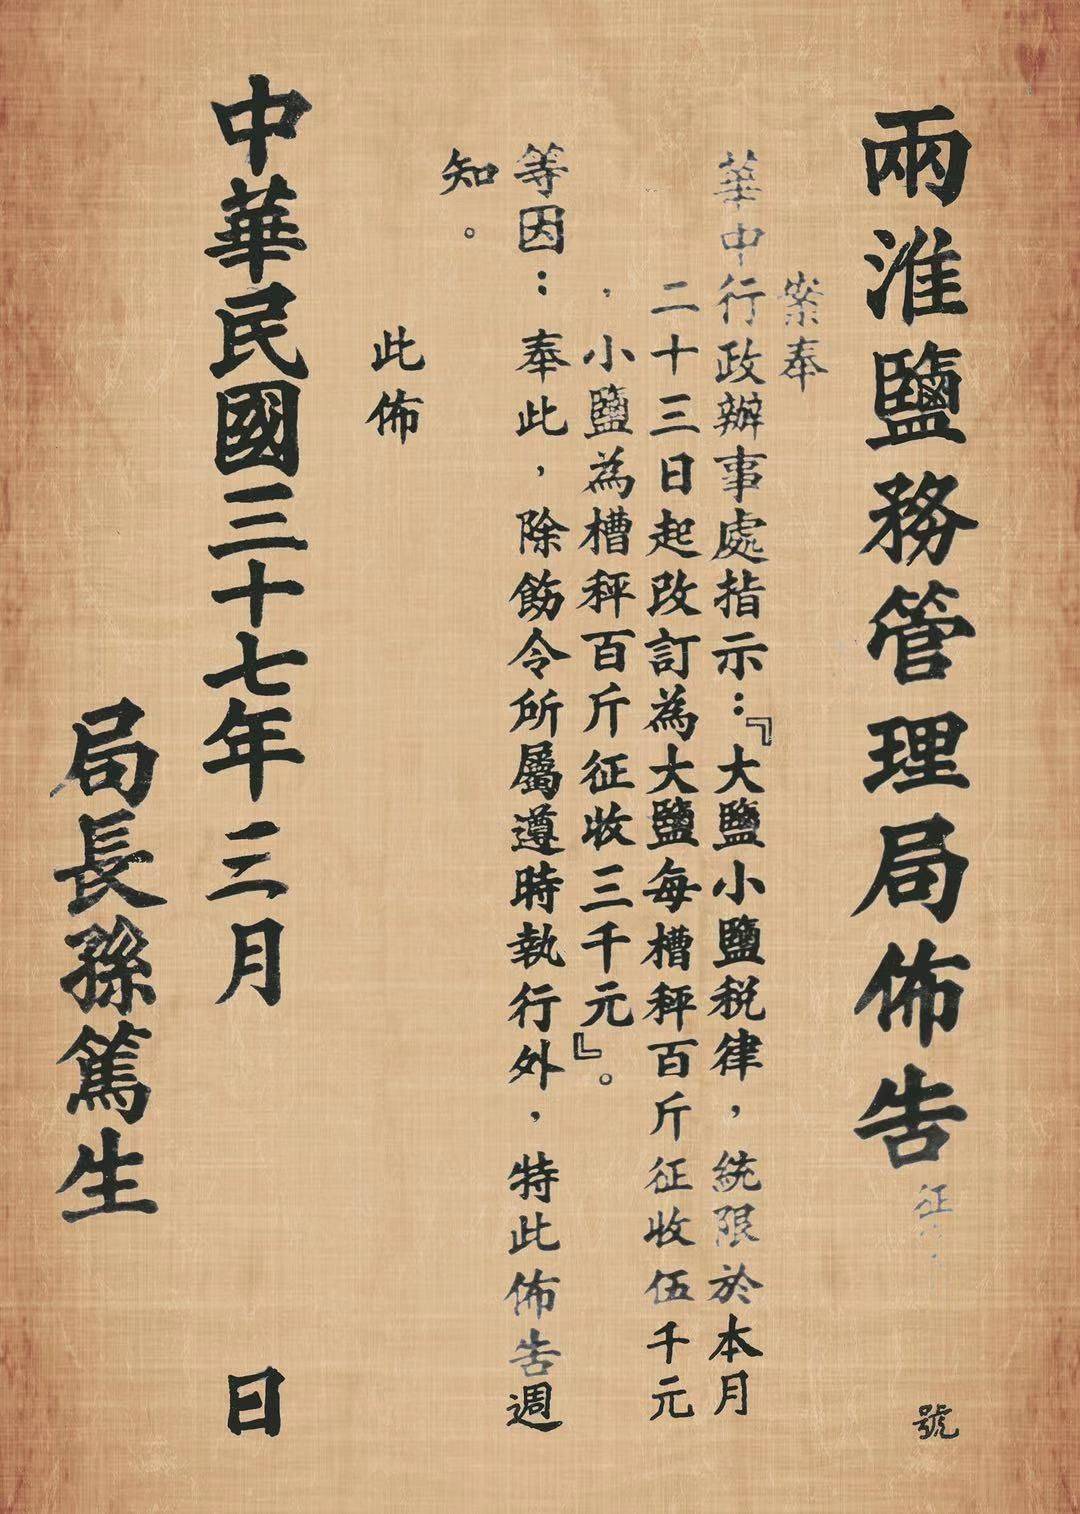 兩淮鹽務管理局佈告征
號
案奉
華中行政辦事處指示：『大鹽小鹽税律，統限於本月
二十三日起改訂為大鹽每槽秤百斤征收伍千元
，小鹽為槽秤百斤征收三千元』。
等因：奉此，除飭令所屬遵時執行外，特此佈告週
知。
此佈
中華民國三十七年三月 日
局長孫篤生